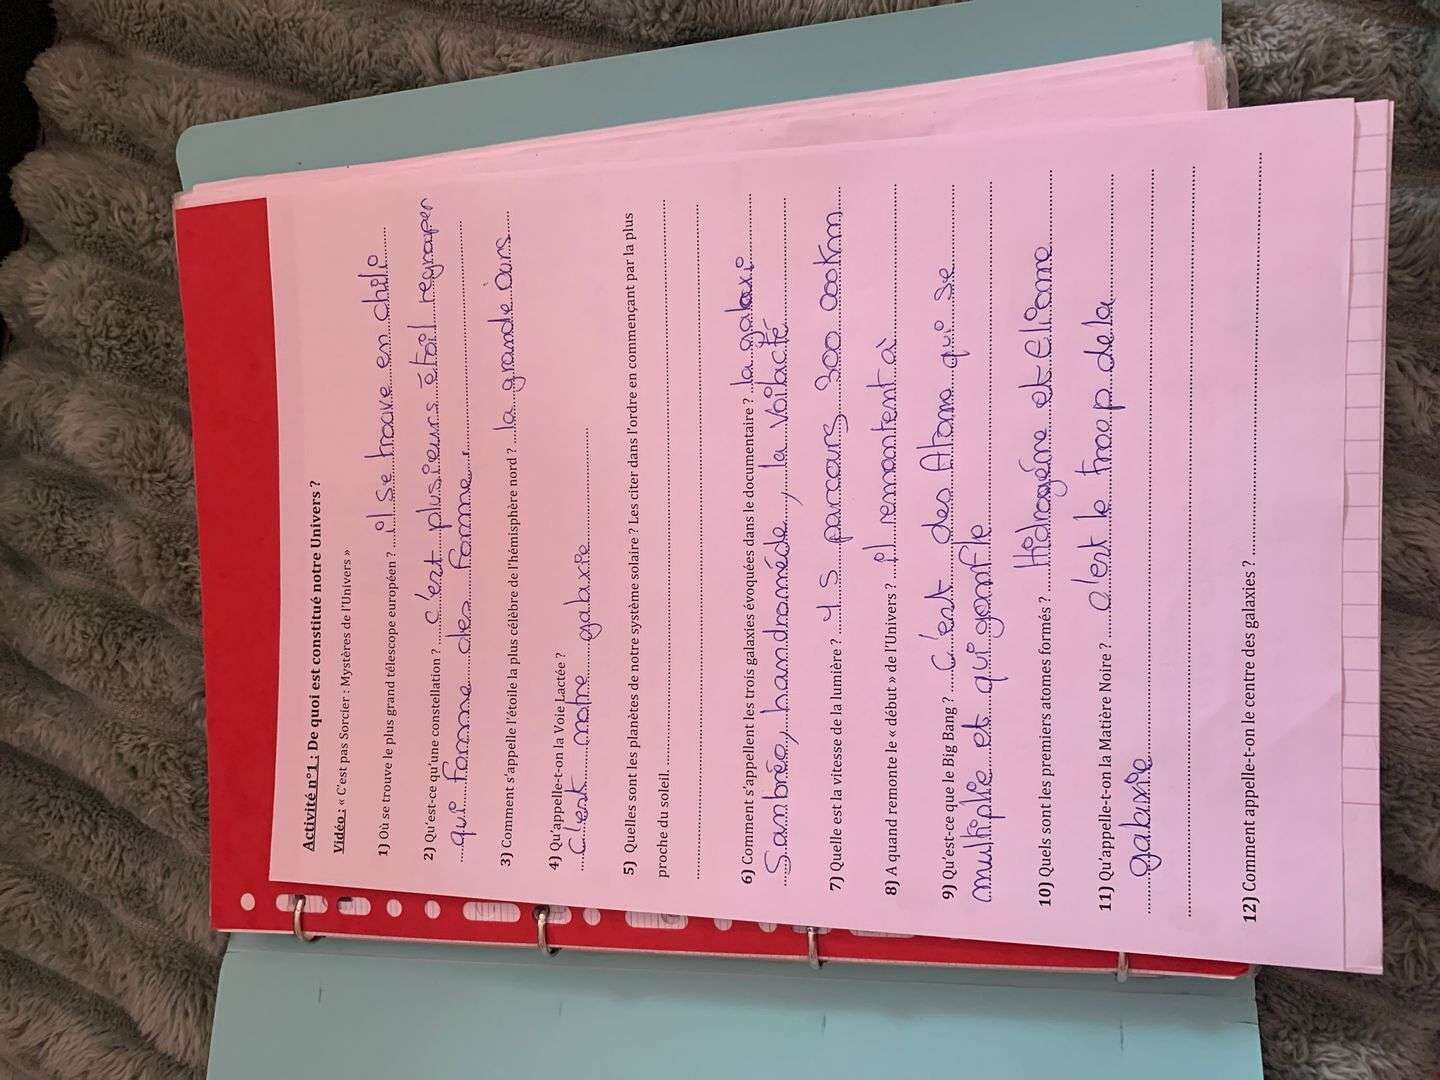 Activité n°1 : De quoi est constitué notre Univers ?
Vidéo : « C'est pas Sorcier : Mystères de l'Univers »
1) Où se trouve le plus grand télescope européen ? il se trouve en chili
2) Qu'est-ce qu'une constellation ? c'est plusieurs étoil regrouper
qui forme des forme.
3) Comment s'appelle l'étoile la plus célèbre de l'hémisphère nord ? la grande ours
4) Qu'appelle-t-on la Voie Lactée ?
C'est notre galaxie
5) Quelles sont les planètes de notre système solaire ? Les citer dans l'ordre en commençant par la plus
proche du soleil.
6) Comment s'appellent les trois galaxies évoquées dans le documentaire ? la galaxi
Sambréo, handroméde, la voilacté
7) Quelle est la vitesse de la lumière ? 1 s parcours 300 000km
8) A quand remonte le « début » de l'Univers ? il remontent à
9) Qu'est-ce que le Big Bang ? C'est des Atome qui se
multiplie et qui gonfle
10) Quels sont les premiers atomes formés ? Hidrogéne et Eliome
11) Qu'appelle-t-on la Matière Noire ? c'est le troop de la
galaxie
12) Comment appelle-t-on le centre des galaxies ?